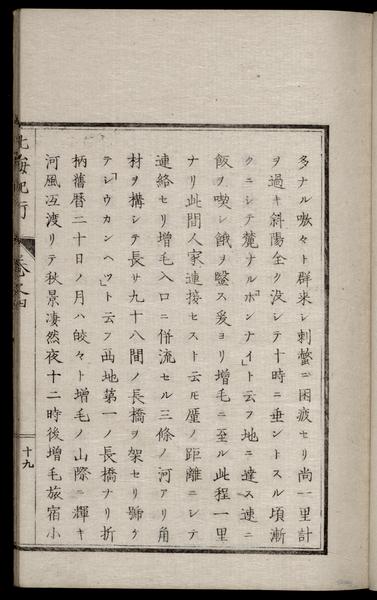 多ナル嗷々ト群来シ刺螫ニ困疲セリ尚一里計
ヲ過キ斜陽全ク没シテ十時ニ垂ントスル頃漸
クニシテ麓ナル「ホンナイ」ト云フ地ニ達ス速ニ
飯ヲ喫シ餓ヲ医ス爰ヨリ増毛ニ至ル此程一里
ナリ此間人家連接セスト云モ屢ノ距離ニシテ
連絡セリ増毛入口ニ併流セル三條ノ河アリ角
材ヲ構シテ長サ九十八間ノ長橋ヲ架セリ号ケ
テ「レウカンヘツ」ト云フ此地第一ノ長橋ナリ折
柄舊暦二十日ノ月ハ皎々ト増毛ノ山際ニ輝キ
河風冱渡リテ秋景凄然夜十二時後増毛旅宿小
北海紀行
巻之四
十九